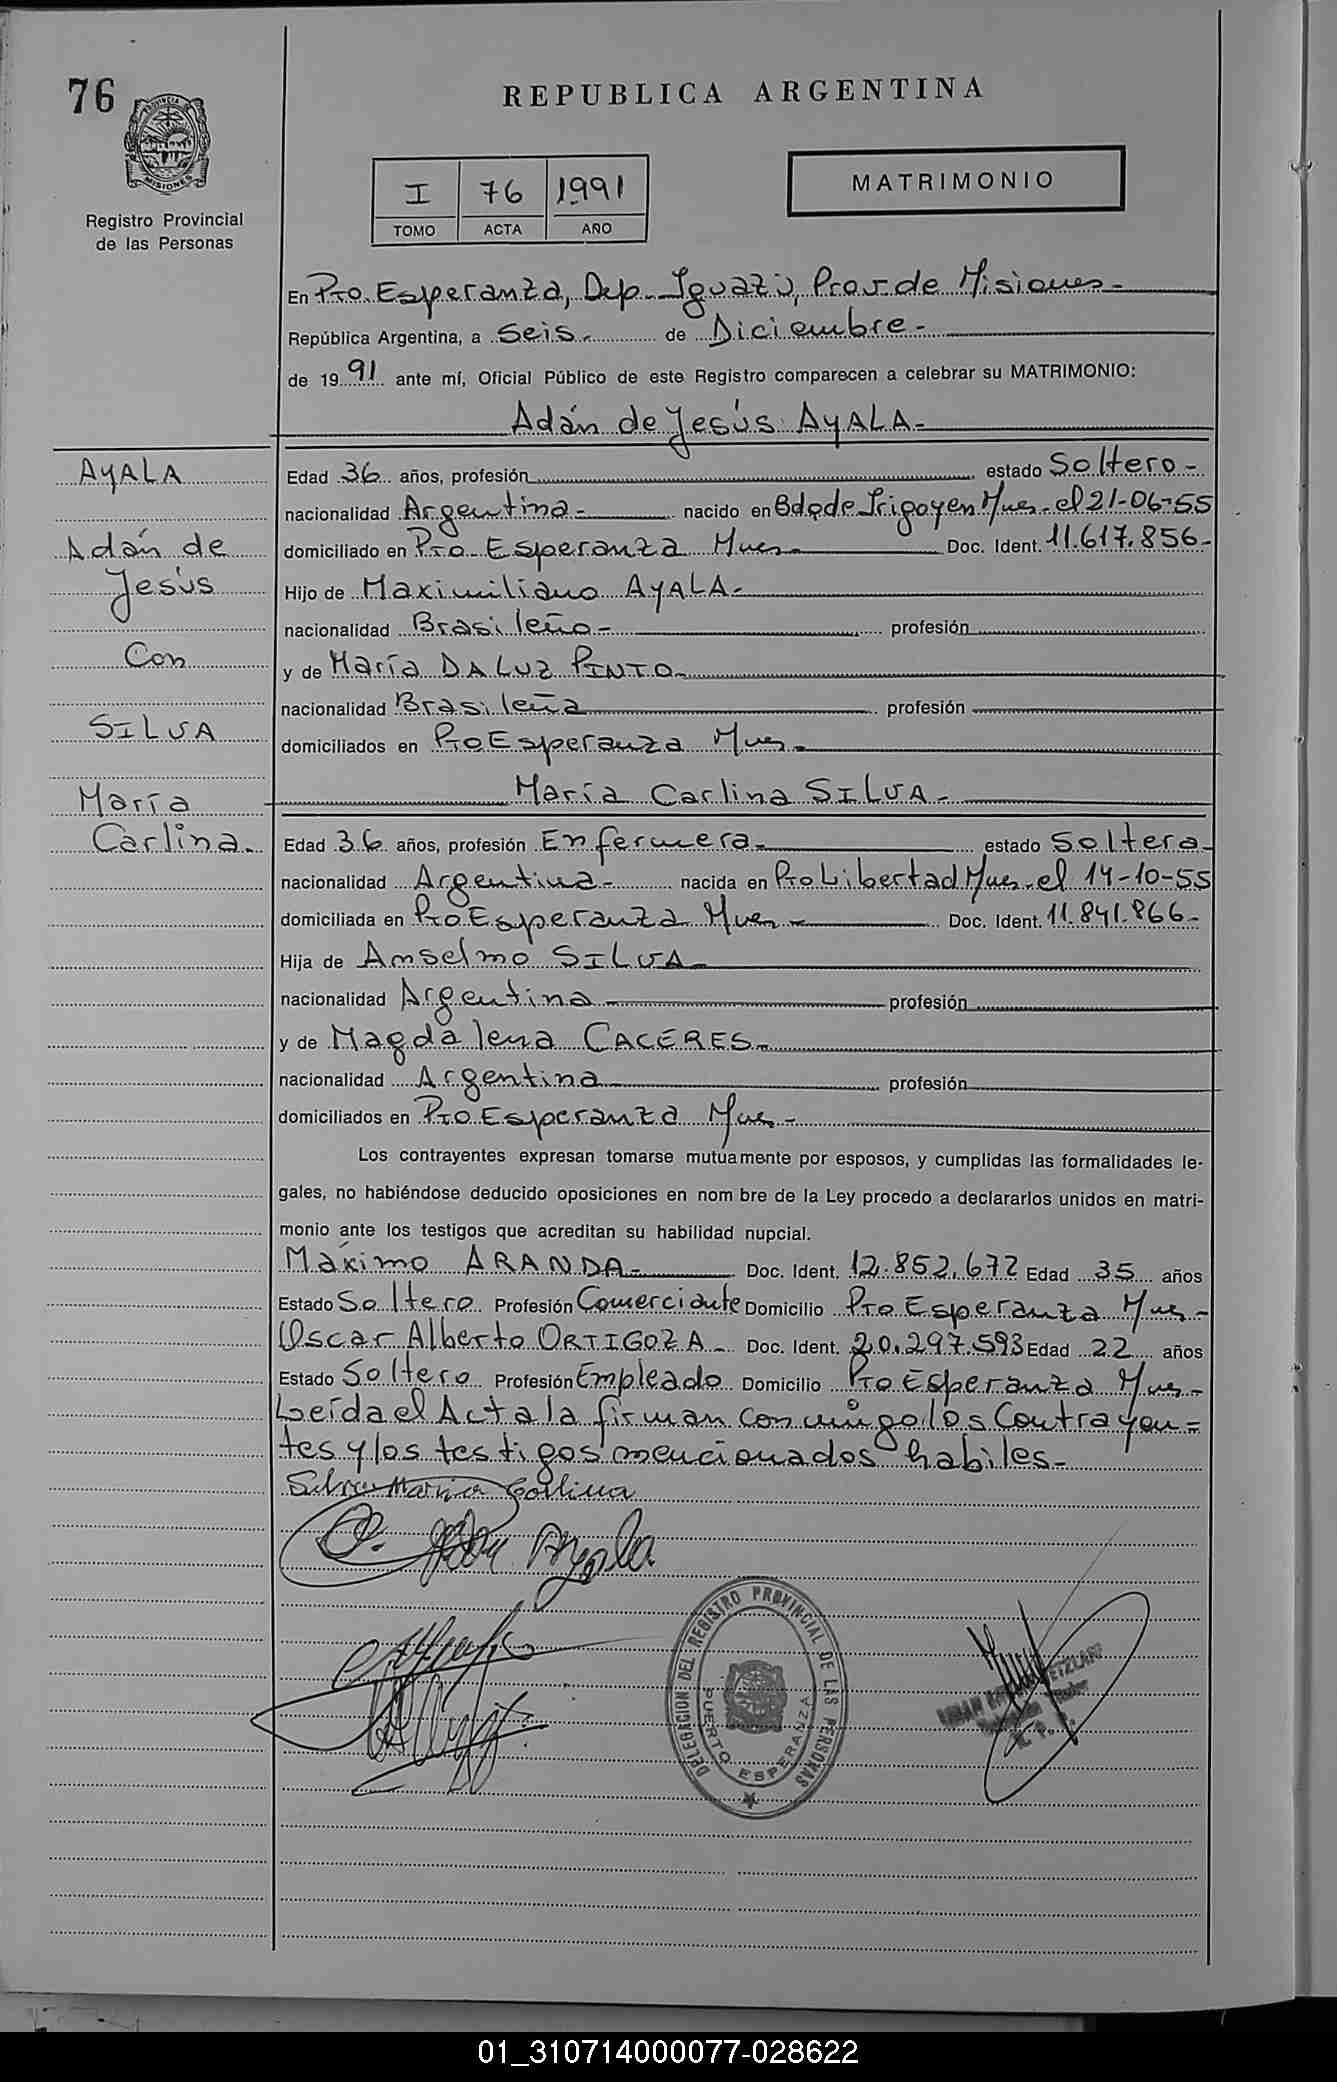 76
PROVINCIA DE
MISIONES
Registro Provincial
de las Personas
REPUBLICA ARGENTINA
I 76 1991
TOMO ACTA AÑO
MATRIMONIO
En Pto. Esperanza, Dep. Iguazú, Prov de Misiones.-
República Argentina, a Seis.- de Diciembre.-
de 1991 ante mí, Oficial Público de este Registro comparecen a celebrar su MATRIMONIO:
Adán de Jesús AyALA.-
AyALA
Adán de
Jesús
Con
SILVA
María
Carlina.-
Edad 36 años, profesión estado Soltero.-
nacionalidad Argentina.- nacido en Bdo de Irigoyen Mnes.- el 21-06-55
domiciliado en Pto. Esperanza Mnes.- Doc. Ident. 11.617.856.-
Hijo de Maximiliano AyALA.-
nacionalidad Brasileño.- profesión
y de María DA LUZ PINTO.-
nacionalidad Brasileña profesión
domiciliados en Pto Esperanza Mnes.-
María Carlina SILVA.-
Edad 36 años, profesión Enfermera.- estado Soltera.-
nacionalidad Argentina.- nacida en Pto Libertad Mnes.- el 14-10-55
domiciliada en Pto Esperanza Mnes.- Doc. Ident. 11.841.866.-
Hija de Anselmo SILVA.-
nacionalidad Argentina.- profesión
y de Magdalena CACERES.-
nacionalidad Argentina profesión
domiciliados en Pto Esperanza Mnes.-
Los contrayentes expresan tomarse mutuamente por esposos, y cumplidas las formalidades le-
gales, no habiéndose deducido oposiciones en nom bre de la Ley procedo a declararlos unidos en matri-
monio ante los testigos que acreditan su habilidad nupcial.
Máximo ARANDA.- Doc. Ident. 12.852.672 Edad 35 años
Estado Soltero Profesión Comerciante Domicilio Pto Esperanza Mnes.-
Oscar Alberto ORTIGOZA.- Doc. Ident. 20.297.593 Edad 22 años
Estado Soltero Profesión Empleado Domicilio Pto Esperanza Mnes.-
Leída el Acta la firman conmigo los Contrayen=
tes y los testigos mencionados habiles.-
Silva Maria Carlina
Ayala
DELEGACION DEL REGISTRO PROVINCIAL DE LAS PERSONAS
PUERTO ESPERANZA
01_310714000077-028622